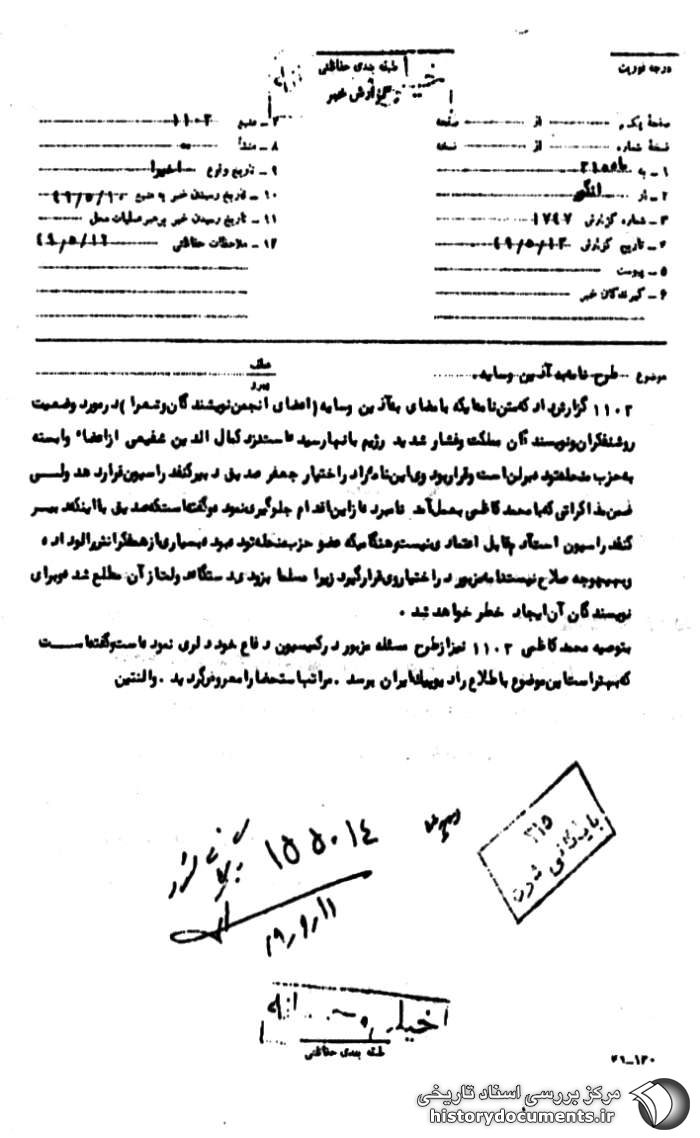 درجه فوریت
طبقه بندی حفاظتی
خیلی محرمانه
گزارش خبر
صفحه یک از صفحه
نسخه شماره از نسخه
۱ـ به ۳۱۵
۲ـ از
۳ـ شماره گزارش ۱۷۴۷
۴ـ تاریخ گزارش ۴۹/۵/۱۳
۵ـ پیوست
۶ـ گیرندگان خبر
۷ـ منبع ۱۱۰۲
۸ـ منشأ
۹ـ تاریخ وقوع اخیرا
۱۰ـ تاریخ رسیدن خبر به منبع
۱۱ـ تاریخ رسیدن خبر برهبر عملیات محل
۱۲ـ ملاحظات حفاظتی ۴۹/۵/۱۲
موضوع ـ طرح نامه به آذین و سایه.
عطف
پیرو
۱۱۰۲ گزارش داد که متن نامه ایکه با مضای به آذین و سایه (اعضای انجمن نویسندگان و شعرا) در مورد وضعیت
روشنفکران و نویسندگان مملکت و فشار شدید رژیم بانها رسیده است نزد کمال الدین شفیعی از اعضاء وابسته
به حزب منحله توده در برلن است و قرار بود وی این نامه را در اختیار جعفر صدیق دبیر کنفدراسیون قرار دهد ولی
ضمن مذاکراتی که با محمد کاظمی بعمل آمد نامبرده از این اقدام جلوگیری نموده و گفته است که صدیق با اینکه دبیر
کنفدراسیون است آدم قابل اعتمادی نیست و هنگامیکه عضو حزب منحله توده بوده بسیاری از همفکرانش را لو داده
و بهیچوجه صلاح نیست نامه مزبور در اختیار وی قرار گیرد زیرا مسلما بزودی دستگاه دولت از آن مطلع شده و برای
نویسندگان آن ایجاد خطر خواهد شد.
بتوصیه محمد کاظمی ۱۱۰۲ نیز از طرح مسئله مزبور در کمیسیون دفاع خودداری نموده است و گفته است
که بهتر است این موضوع باطلاع رادیو پیک ایران برسد. مراتب استحضارا معروض گردید. والنتین
۳۱۵
بایگانی شود
۱۵۵۰۱۴
بایگانی شود
طبقه بندی حفاظتی
۲۱ـ۱۲۰
مرکز بررسی اسناد تاریخی
historydocuments.ir